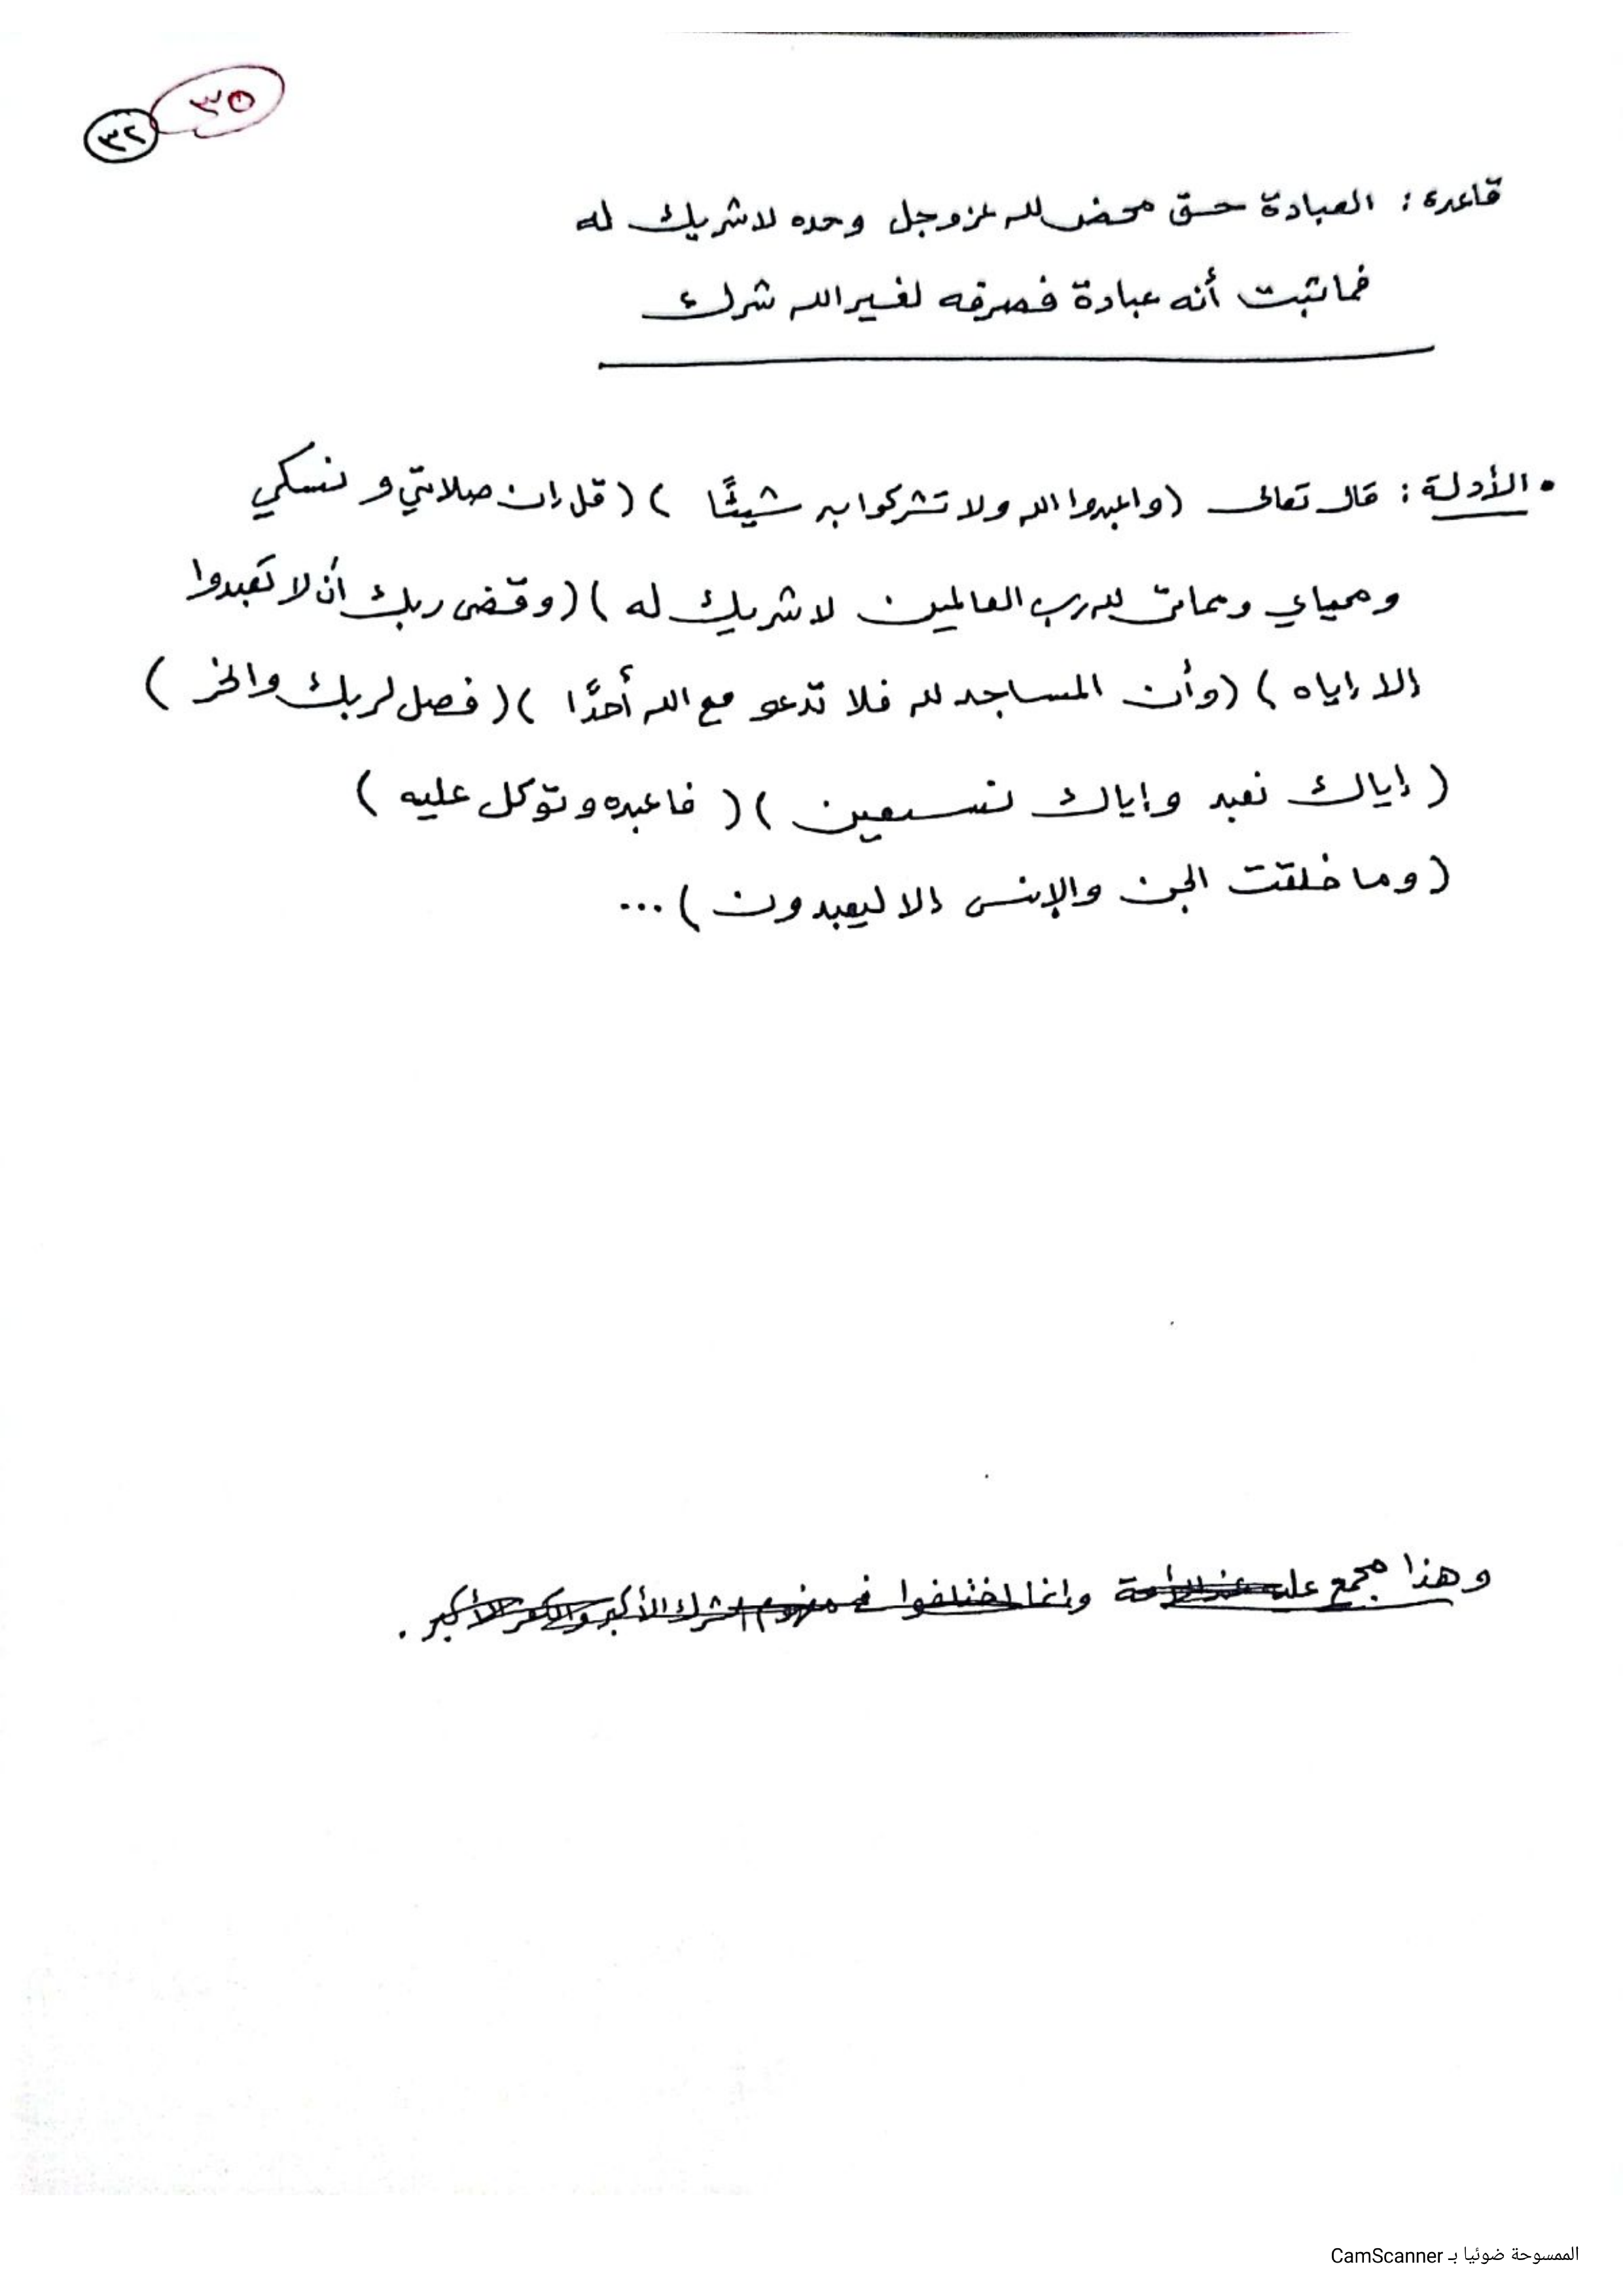 ٣٥
٣٢
قاعدة : العبادة حق محض لله عز وجل وحده لا شريك له
فما ثبت أنه عبادة فصرفه لغير الله شرك
• الأدلة : قال تعالى (واعبدوا الله ولا تشركوا به شيئًا ) ( قل إن صلاتي و نسكي
و محياي ومماتي لله رب العالمين لا شريك له ) (وقضى ربك أن لا تعبدوا
إلا إياه ) (وأن المساجد لله فلا تدعو مع الله أحدًا ) ( فصل لربك وانحر )
( إياك نعبد وإياك نستعين ) ( فاعبده وتوكل عليه )
( وما خلقت الجن والإنس إلا ليعبدون ) ...
وهذا مجمع عليه عند الأمة وإنما اختلفوا في مفهوم الشرك الأكبر والكفر الأكبر .
الممسوحة ضوئيا بـ CamScanner